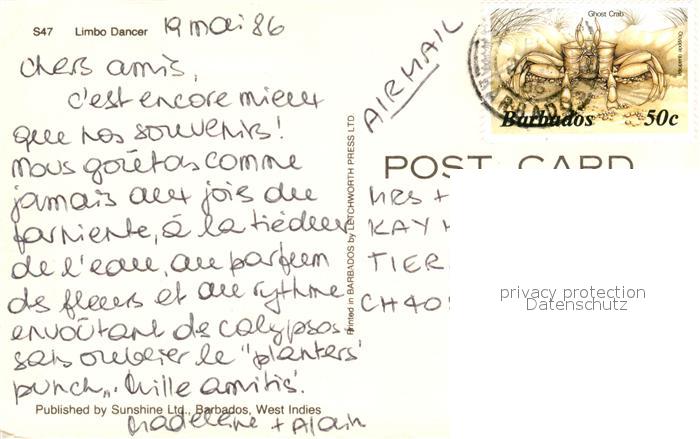 S47 Limbo Dancer 19 mai 86
chers amis,
c'est encore mieux
que nos souvenirs!
nous goûtons comme
jamais aux joies du
farniente, à la tiédeur
de l'eau, au parfum
des fleurs et au rythme
envoûtant de calypsos
sans oublier le "planters'
punch". Mille amitiés.
Published by Sunshine Ltd., Barbados, West Indies
Madeleine + Alain
Printed in BARBADOS by LETCHWORTH PRESS LTD
AIRMAIL
Ghost Crab
Barbados 50c
POST CARD
MRS +
KAY
TIER
CH40
privacy protection
Datenschutz